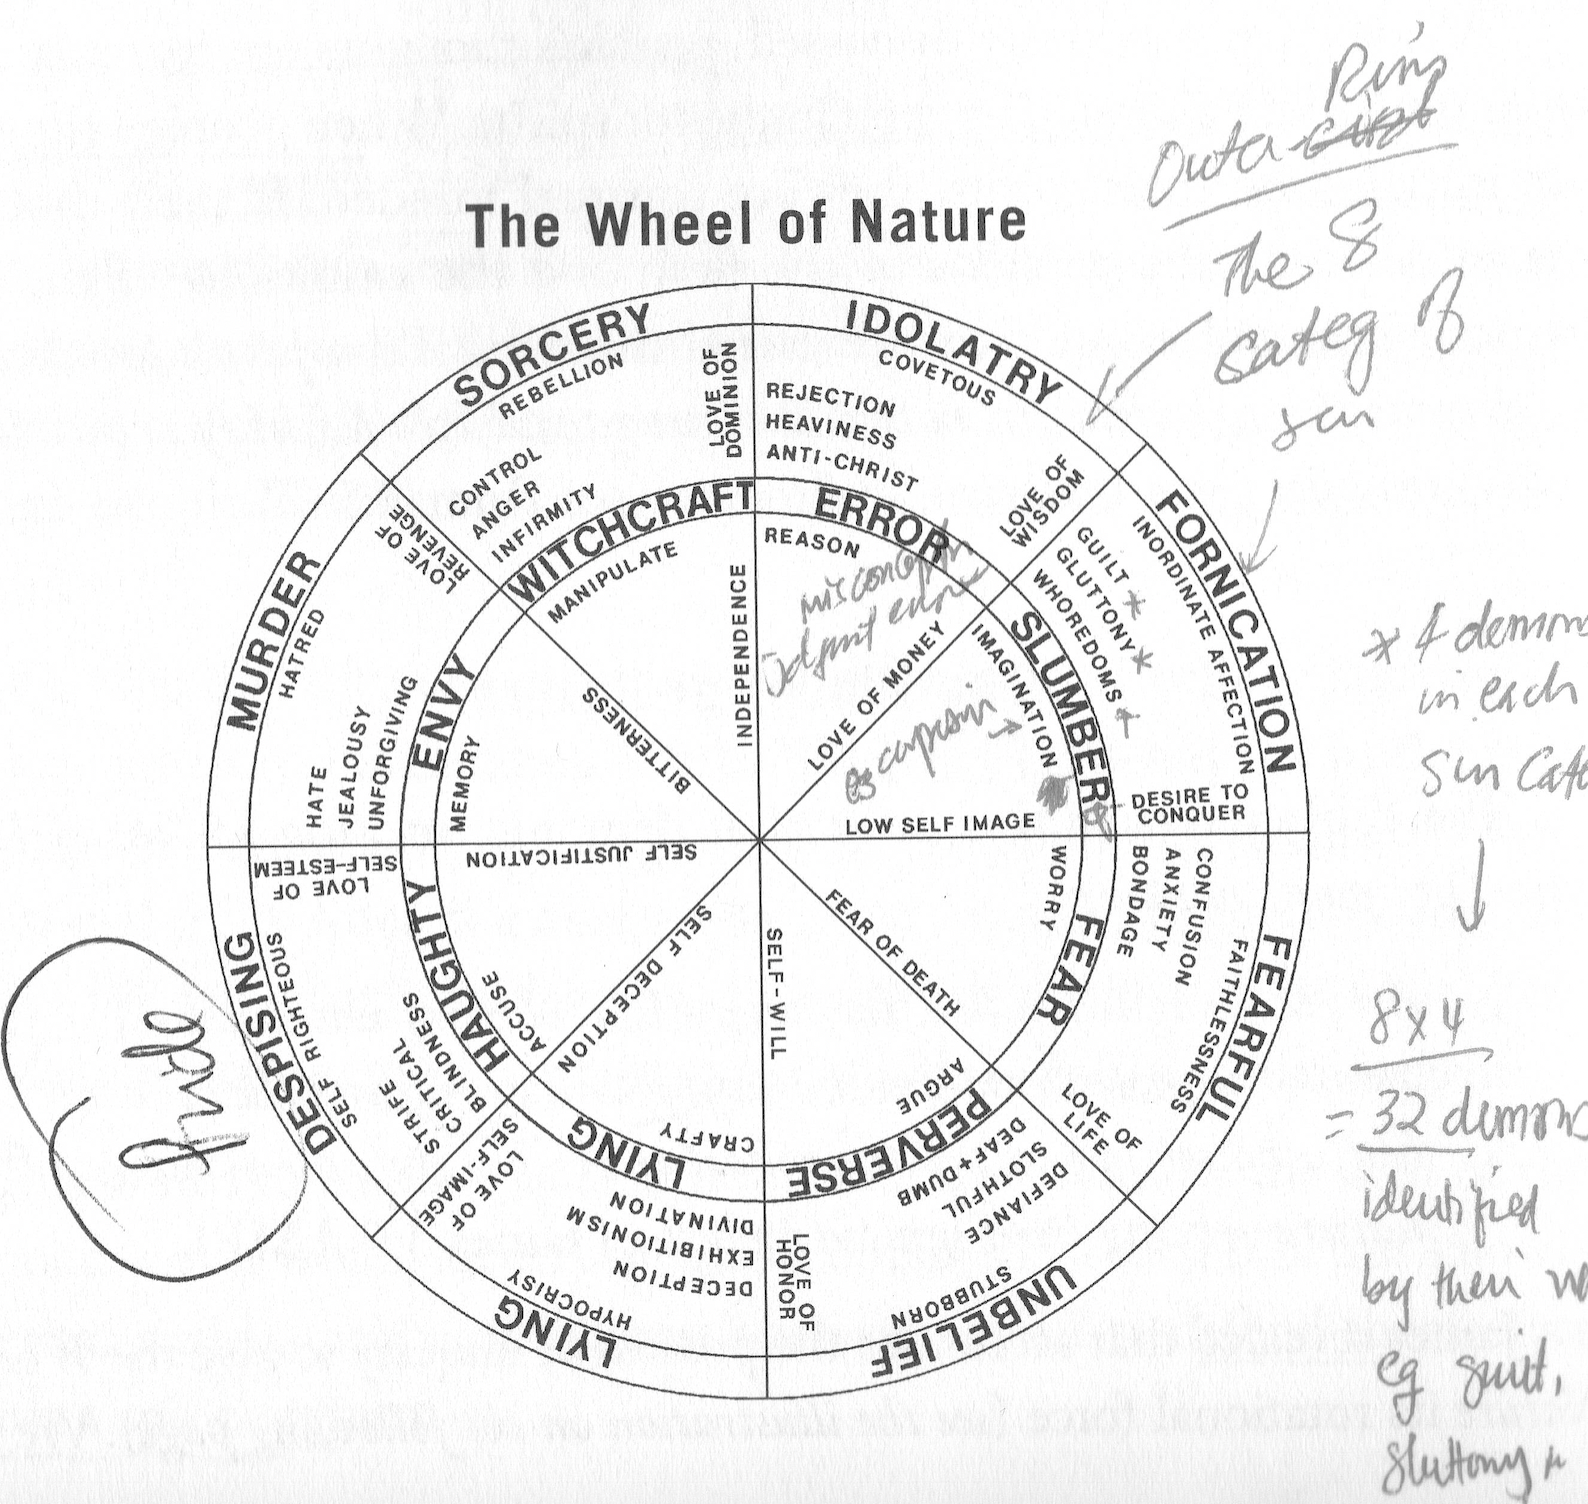 Ring
Outer
The Wheel of Nature
The 8
categ of
sin
SORCERY
REBELLION
LOVE OF
DOMINION
CONTROL
ANGER
INFIRMITY
WITCHCRAFT
MANIPULATE
INDEPENDENCE
IDOLATRY
COVETOUS
REJECTION
HEAVINESS
ANTI-CHRIST
LOVE OF
WISDOM
ERROR
REASON
LOVE OF MONEY
FORNICATION
INORDINATE AFFECTION
GUILT *
GLUTTONY *
WHOREDOMS
DESIRE TO
CONQUER
SLUMBER
IMAGINATION
LOW SELF IMAGE
FEARFUL
FAITHLESSNESS
CONFUSION
ANXIETY
BONDAGE
LOVE OF
LIFE
FEAR
WORRY
FEAR OF DEATH
UNBELIEF
STUBBORN
DEFIANCE
SLOTHFUL
DEAF+DUMB
LOVE OF
HONOR
PERVERSE
ARGUE
SELF-WILL
LYING
HYPOCRISY
DECEPTION
EXHIBITIONISM
DIVINATION
LOVE OF
SELF-IMAGE
LYING
CRAFTY
SELF DECEPTION
DESPISING
SELF RIGHTEOUS
STRIFE
CRITICAL
BLINDNESS
LOVE OF
SELF-ESTEEM
HAUGHTY
ACCUSE
SELF JUSTIFICATION
MURDER
HATRED
HATE
JEALOUSY
UNFORGIVING
LOVE OF
REVENGE
ENVY
MEMORY
BITTERNESS
Pride
* 4 demons
in each
sin
8x4
= 32 demons
identified
by their
eg guilt,
gluttony